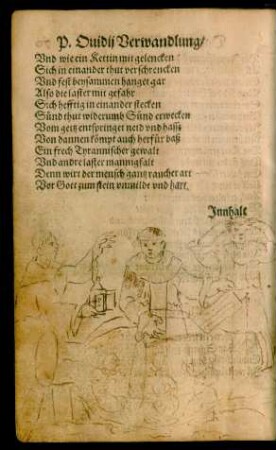 P. Ouidij Verwandlung/
Vnd wie ein Kettin mit gelencken
Sich in einander thut verschrencken
Vnd fest beysammen hanget gar
Also die laster mit gefahr
Sich hefftig in einander stecken
Sünd thut widerumb Sünd erwecken
Vom geitz entspringet neid vnd haß
Von dannen kömpt auch herfür baß
Ein frech Tyrannischer gewalt
Vnd andre laster manigfalt
Denn wirt der mensch gantz raucher art
Vor Gott zum stein vnmilde vnd hart.
Innhalt